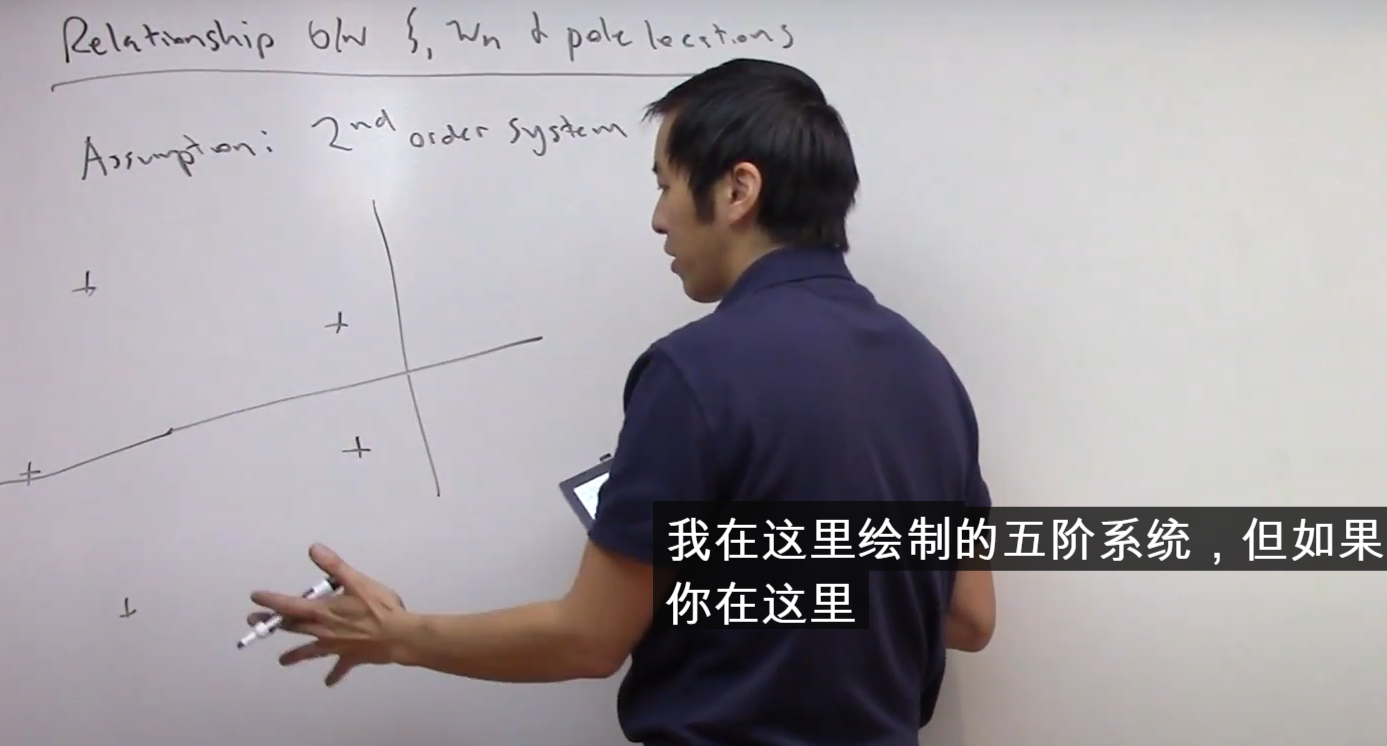 Relationship b/w ζ, ωn & pole locations
Assumption: 2nd order system
我在这里绘制的五阶系统，但如果
你在这里